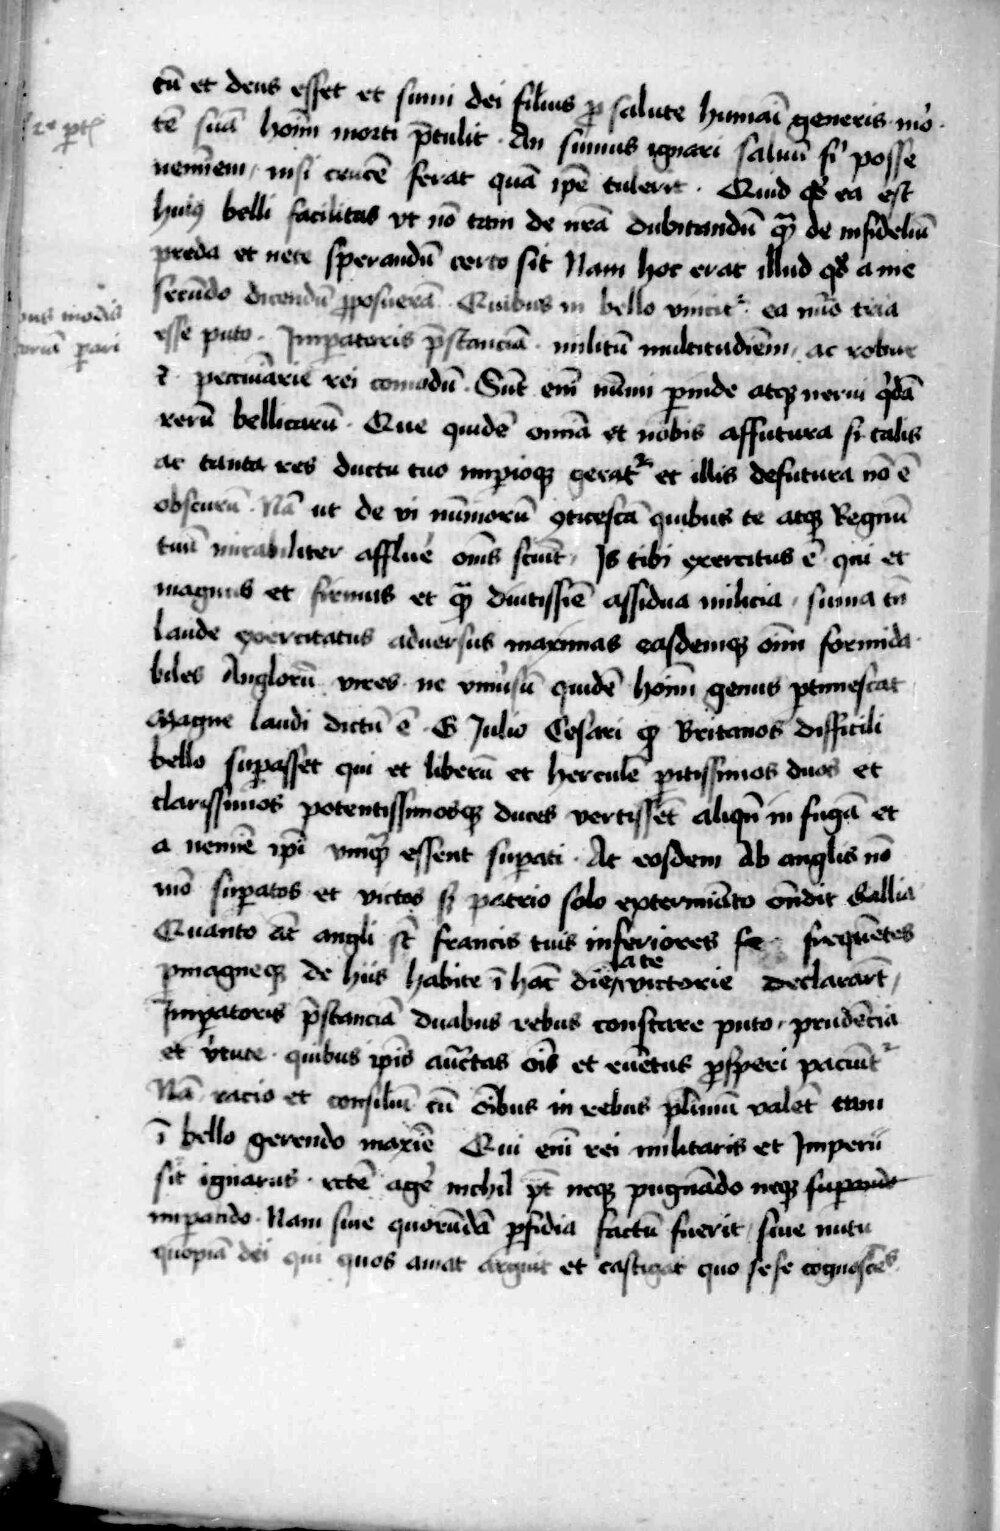 tū et deus esset et sūmi dei filius ꝓ salute humaī generis mo᷑
tē suā hoīm morti p̄tulit · An sumus ignari saluū fi᷑i posse
2ᵃ pt
nemīem nisi crucē ferat quā ip̄e tulerit · Quid qđ ea est
huiꝰ belli facilitas vt nō tam de nr̄a dubitandū qȝ de infideliū
preda et nece sperandū certo sit Nam hoc erat illud qđ a me
secūdo dicendū ꝓposuerā · Quibus in bello vincit᷑ ea nūo tria
modis
esse puto · Imꝑatoris p̄stanciā · militū multitudinem, ac robur
⁊ pecuniarie rei comodū · Sūt enī nūmi ꝑinde atqȝ nerui q᷑dā
rerū bellicarū · Que quidē omīa et nobis affutura si talis
ac tanta res ductu tuo imꝑioqȝ gerat᷑ et illis defutura nō ē
obscurū · Nā ut de vi nūmorū ꝯticescā quibus te atqȝ Regnū
tuū mirabiliter afflue᷑ oms sciūt, Is tibi exercitus ē qui et
magnus et firmus et qȝ diutissīe assidua milicia, suma tn̄
laude exercitatus aduersus maximas easdemqȝ oīm formida
biles Anglorū vires ne vniu᷑sū quidē hoīm genus ꝑtimescat
Magne laudi dictū ē G Julio Cesari qȝ Britanos difficili
bello suꝑasset qui et liberū et herculē ꝑitissimos duos et
clarissimos potentissimosqȝ duces vertissēt aliqn̄ in fugā et
a nemīe ip̄i vnqȝ essent suꝑati · At eosdem Ab anglis nō
mō suꝑatos et victos sȝ patrio solo extermīato oñdit Gallia
Quanto at̄ angli st̄ francis tuis inferiores frequētes
ꝑmagneqȝ de hiis habite ī hāc diē late victorie declarar̄t,
Imꝑatoris p̄stanciā duabus rebus constare puto, prudēcia
et v᷑tute · quibus ip̄is auctas oīs et euētus ꝓsperi paciūt᷑
Nā racio et consiliū cū oībus in rebus pl᷑imū valet tam
ī bello gerendo maxīe Qui enī rei militaris et Imperii
sit ignarus · rctē age᷑ nichil pt̄ neqȝ pugnādo neqȝ
imꝑando · Nam siue quorūdā ꝑfidia factū fuerit, siue nutu
quopiā dei qui quos amat arguit et castigat quo sese cognoscēs